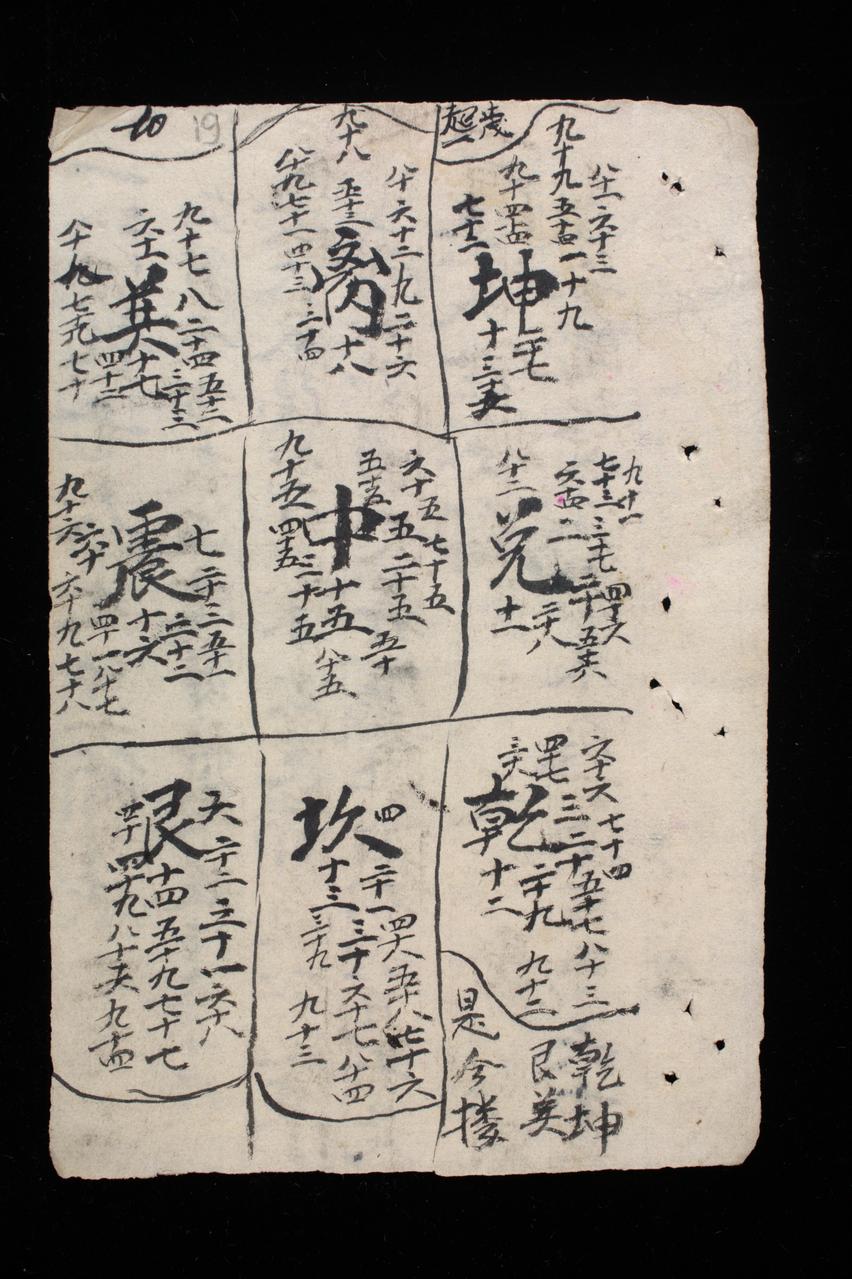 歲
起一
九十九 五十四 一 十九
八十一 六十三
九十四
七十二
坤
二十七
十
三十五
九十八
八十 六十二 九 二十六
五十三
离
十八
八十九 七十一 四十三 三十四
九十七 八 二十四 五十二
六十一
英
十七
三十三
四十二
八十 九十 七十九 七十
九十一
七十三 三十七 四十六
六十四 二 二十 五十六
八十二
兌
二十八
十一
六十五 七十五
五十五 五 二十五 五十
中
十五
八十五
九十五 四十五 三十五
七 二十三 五十一
震
十六
三十二
九十六 六十 四十一 八十七
六十九 七十八
六十六 七十四
四十七 三 二十 五十七 八十三
三十六
乾
二十九 九十二
十二
四
坎
二十一 四十八 五十八 七十六
十三 三十 六十七 八十四
三十九 九十三
六 二十二 三十一 六十八
艮
十四 五十九 七十七
四十 四十九 八十六 九十四
乾坤
艮英
是今搂
19